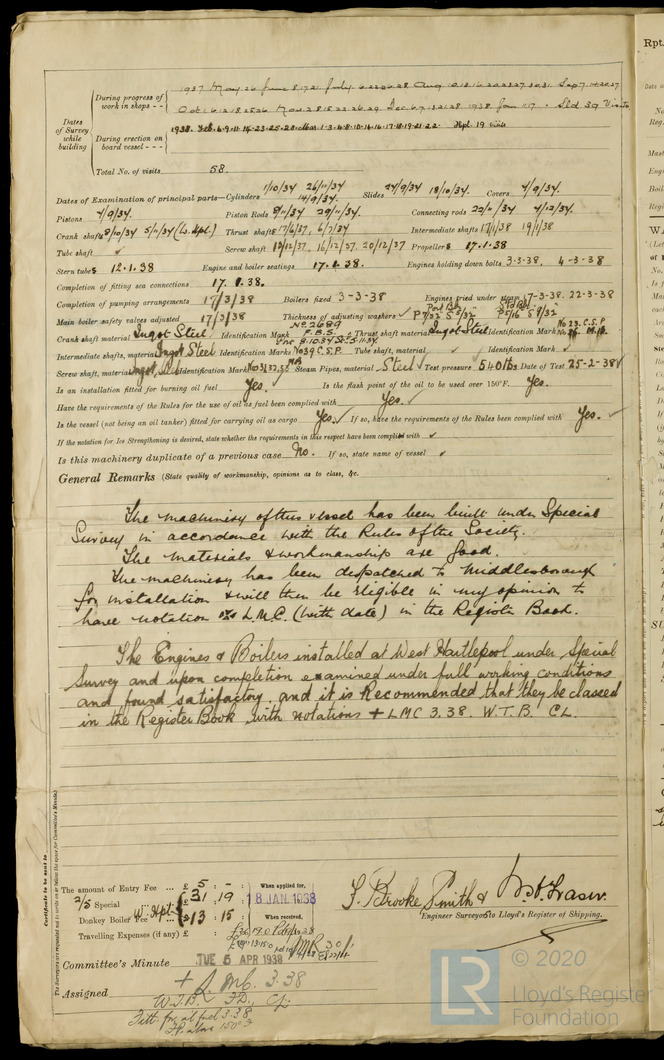 During progress of work in shops - -
1937 May 26 June 8.17.21 July
Dates of Survey while building
During erection on board vessel - - -
1938. Feb. 4.9.11.15.23.25.28. Mar 1.3.4.8.10.14.16.17.18.19.21.22. Hpl. 19 visits
Total No. of visits 58.
Dates of Examination of principal parts—Cylinders 1/10/34 26/11/34 14/9/34. Slides 24/9/34 18/10/34. Covers 4/9/34.
Pistons 4/9/34. Piston Rods 29/11/34. Connecting rods 4/12/34.
Crank shaft 8/10/34 5/11/34 (Lo. Hpl.) Thrust shaft 17/6/37, 6/7/34 Intermediate shafts 17/1/38 19/1/38
Tube shaft ✓ Screw shaft 16/12/37. 20/12/37 Propeller 17.1.38
Stern tube 12.1.38 Engine and boiler seatings 17.1.38. Engines holding down bolts 3-3-38, 4-3-38
Completion of fitting sea connections 17.1.38.
Completion of pumping arrangements 17/3/38 Boilers fixed 3-3-38 Engines tried under steam 17-3-38. 22-3-38
Main boiler safety valves adjusted 17/3/38 Thickness of adjusting washers ✓ Port Blr P 7/32 S 5/32" Stbd Blr P 5/16 S 9/32"
Crank shaft material Ingot Steel Identification Mark No 2689 F.B.S. Thrust shaft material Ingot Steel Identification Mark No 23. C.S.P
Intermediate shafts, material Ingot Steel Identification Marks No 39 C.S.P Tube shaft, material ✓ Identification Mark ✓
Screw shaft, material Ingot Steel Identification Mark Steam Pipes, material Steel ✓ Test pressure 540 lbs Date of Test 25-2-38 ✓
Is an installation fitted for burning oil fuel Yes. ✓ Is the flash point of the oil to be used over 150°F. Yes.
Have the requirements of the Rules for the use of oil as fuel been complied with Yes. ✓
Is the vessel (not being an oil tanker) fitted for carrying oil as cargo Yes. ✓ If so, have the requirements of the Rules been complied with Yes. ✓
If the notation for Ice Strengthening is desired, state whether the requirements in this respect have been complied with ✓
Is this machinery duplicate of a previous case No. If so, state name of vessel ✓
General Remarks (State quality of workmanship, opinions as to class, &c.
The machinery of this vessel has been built under Special
Survey in accordance with the Rules of the Society.
The materials & workmanship are good.
The machinery has been despatched to Middlesborough
for installation & will then be eligible in my opinion to
have notation L.M.C. (with date) in the Register Book.
The Engines & Boilers installed at West Hartlepool under Special
Survey and upon completion examined under full working conditions
and found satisfactory, and it is Recommended that they be classed
in the Register Book with notations + LMC 3.38. W.T.B. CL.
Certificate to be sent to
(The Surveyors are requested not to write on or below the space for Committee's Minute.)
The amount of Entry Fee ... £ 5 : - : When applied for,
2/5 Special W. Hpl. £ 31 : 19 : 18 JAN 1938
Donkey Boiler Fee £ 13 : 15 : When received,
Travelling Expenses (if any) £
F. Brooke Smith &
Engineer Surveyors to Lloyd's Register of Shipping.
Committee's Minute TUE 5 APR 1938
Assigned + LMC. 3.38
W.T.B. F.D., CL.
Fitt. for oil fuel 3.38
F.P. above 150°F
LR © 2020
Lloyd's Register
Foundation
Rpt.